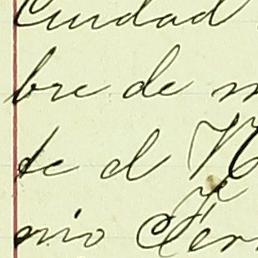 Ciudad
bre de m
te el N
nio Fer